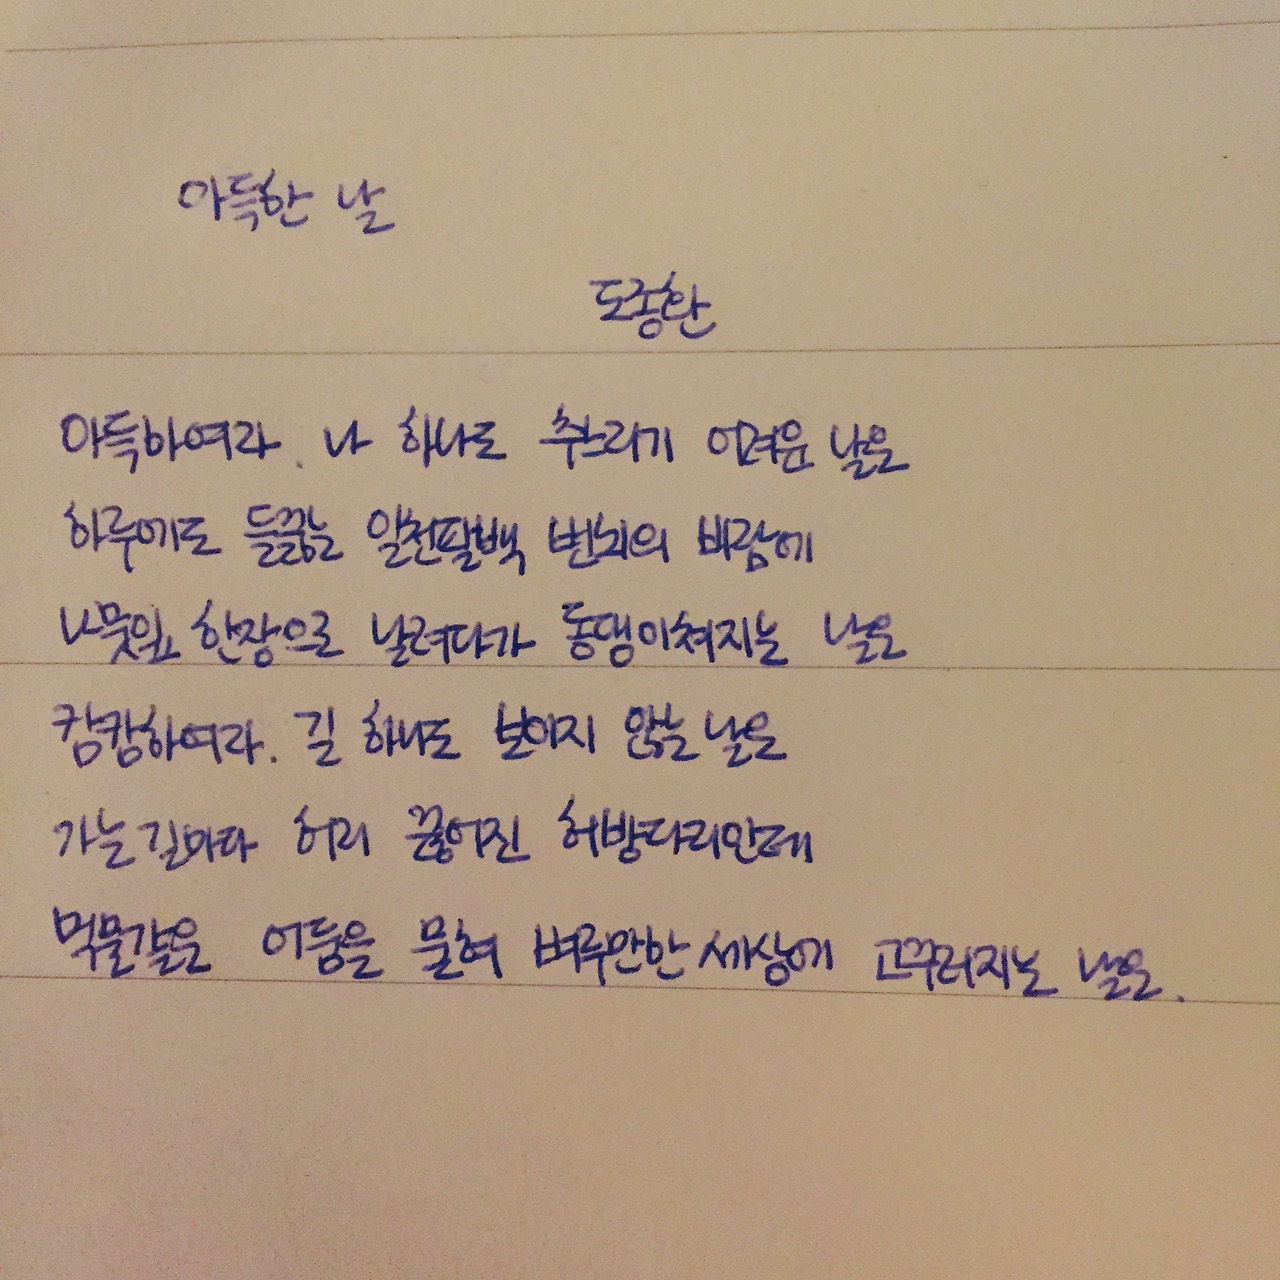 아득한 날
도종환
아득하여라. 나 하나도 추스리기 어려운 날은
하루에도 들끓는 일천팔백 번뇌의 바람에
나뭇잎 한장으로 날려다가 동댕이쳐지는 날은
캄캄하여라. 길 하나도 보이지 않는 날은
가는 길마다 허리 끊어진 허방다리인데
먹물같은 어둠을 묻혀 벼루만한 세상에 고꾸러지는 날은.